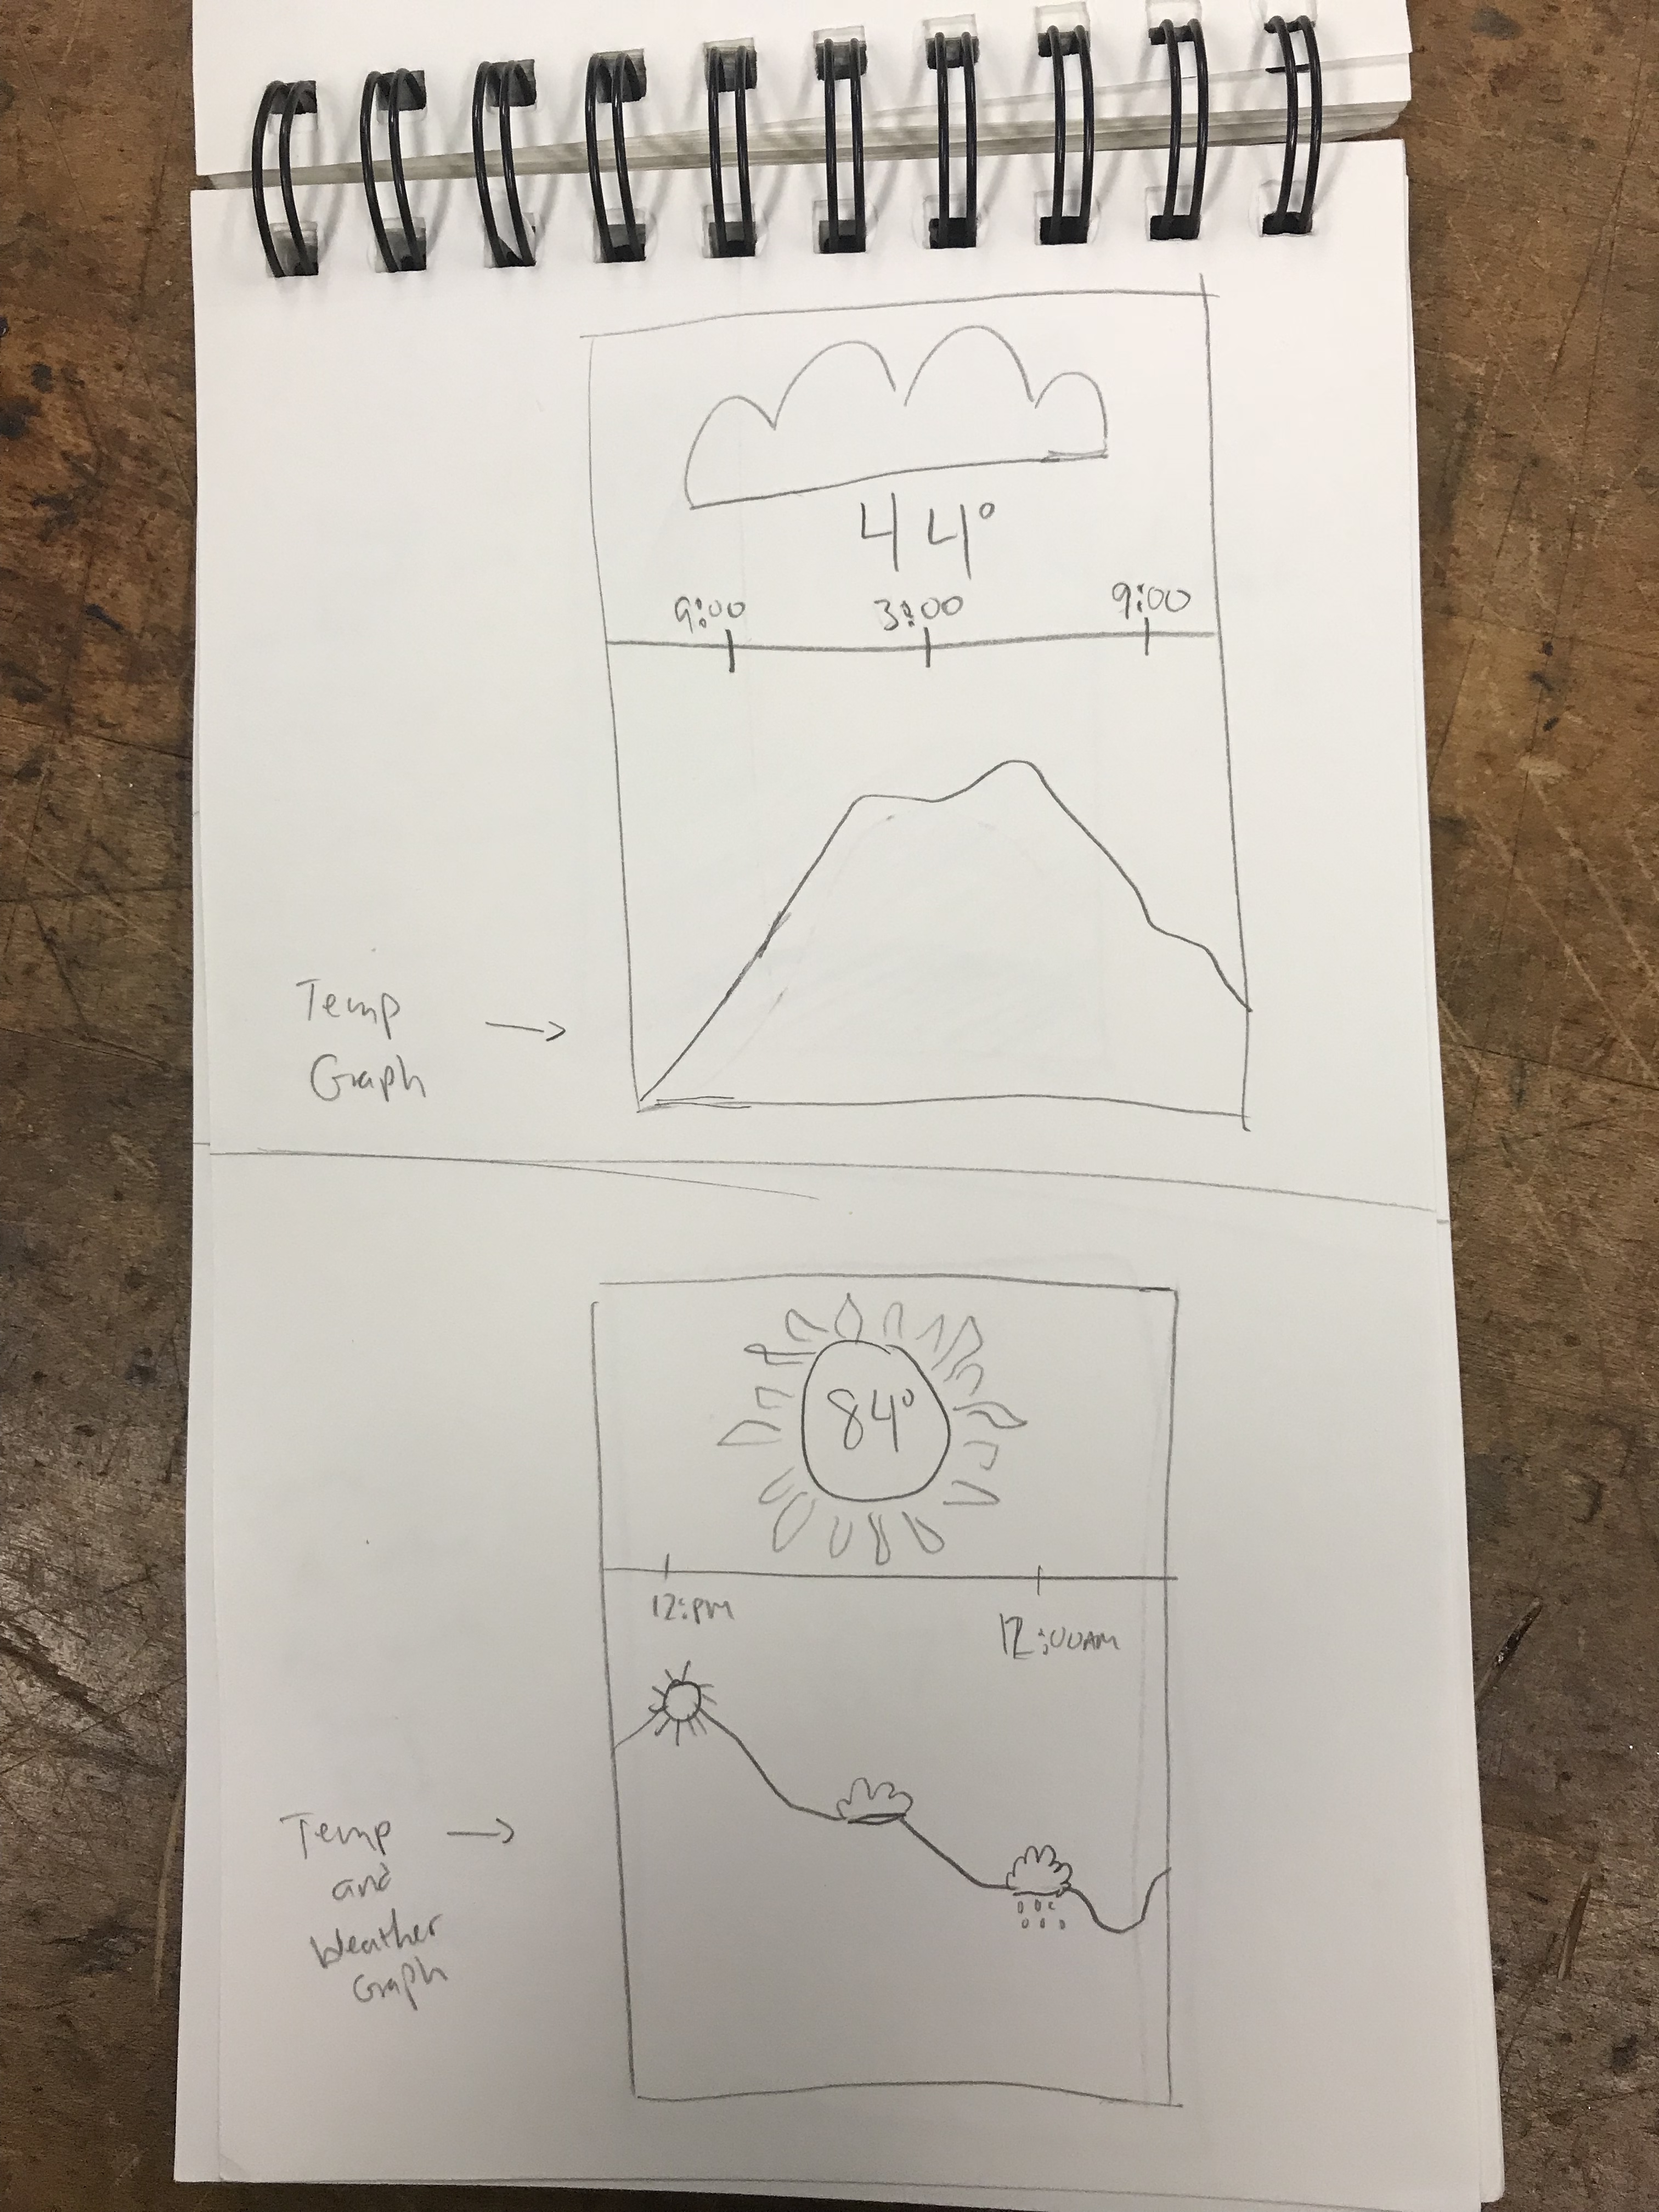 44°
9:00 3:00 9:00
Temp
Graph
84°
12:PM
12:00AM
Temp
and
Weather
Graph